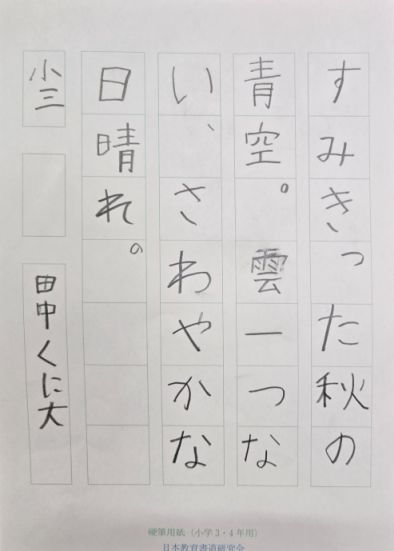 すみきった秋の
青空。雲一つな
い、さわやかな
日晴れ。
小三
田中くに大
硬筆用紙(小学3・4年用)
日本教育書道研究会